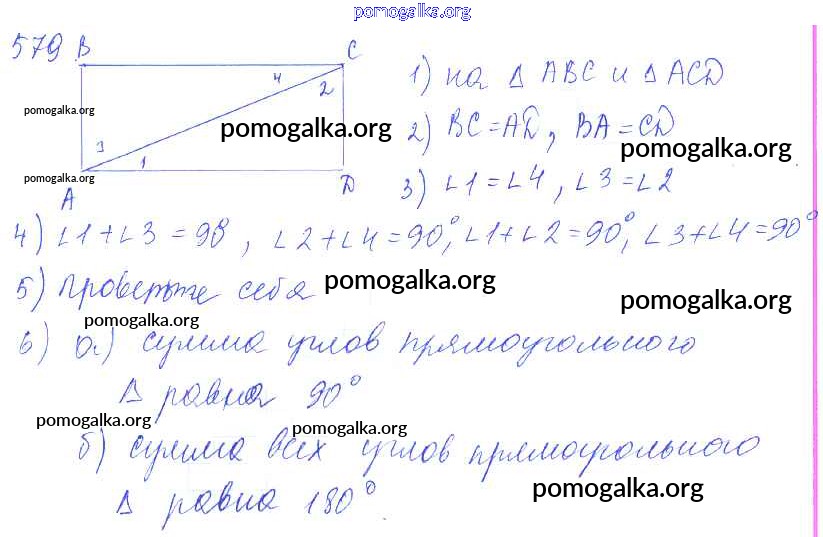 pomogalka.org
579
B
C
4
2
3
1
A
D
pomogalka.org
pomogalka.org
pomogalka.org
1) на Δ ABC и Δ ACD
2) BC=AD, BA=CD
pomogalka.org
3) ∠1=∠4, ∠3=∠2
4) ∠1+∠3=90°, ∠2+∠4=90°, ∠1+∠2=90°, ∠3+∠4=90°
5) Проверьте себя
pomogalka.org
pomogalka.org
pomogalka.org
6) а) сумма углов прямоугольного
Δ равна 90°
pomogalka.org
pomogalka.org
б) сумма всех углов прямоугольного
Δ равна 180°
pomogalka.org